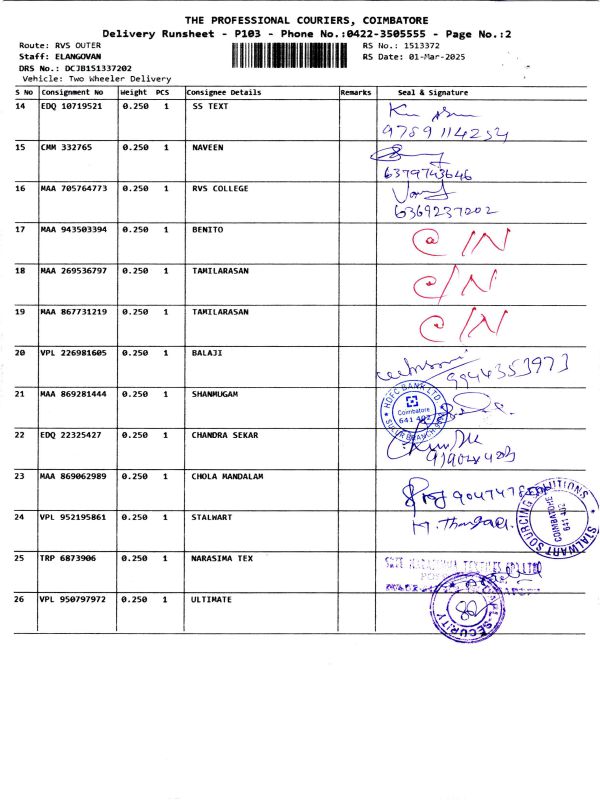 THE PROFESSIONAL COURIERS, COIMBATORE
Delivery Runsheet - P103 - Phone No.:0422-3505555 - Page No.:2
Route: RVS OUTER RS No.: 1513372
Staff: ELANGOVAN RS Date: 01-Mar-2025
DRS No.: DCJB151337202
Vehicle: Two Wheeler Delivery
S No Consignment No Weight PCS Consignee Details Remarks Seal & Signature
14 EDQ 10719521 0.250 1 SS TEXT
9789114254
15 CMM 332765 0.250 1 NAVEEN
6379743646
16 MAA 705764773 0.250 1 RVS COLLEGE
6369237202
17 MAA 943503394 0.250 1 BENITO C/N
18 MAA 269536797 0.250 1 TAMILARASAN C/N
19 MAA 867731219 0.250 1 TAMILARASAN C/N
20 VPL 226981605 0.250 1 BALAJI
9944353973
21 MAA 869281444 0.250 1 SHANMUGAM
HDFC BANK LTD.
Coimbatore
641 402
SULUR BRANCH
22 EDQ 22325427 0.250 1 CHANDRA SEKAR
23 MAA 869062989 0.250 1 CHOLA MANDALAM
24 VPL 952195861 0.250 1 STALWART
STALWART SOURCING
COIMBATORE
641 402
25 TRP 6873906 0.250 1 NARASIMA TEX
26 VPL 950797972 0.250 1 ULTIMATE
SECURITY